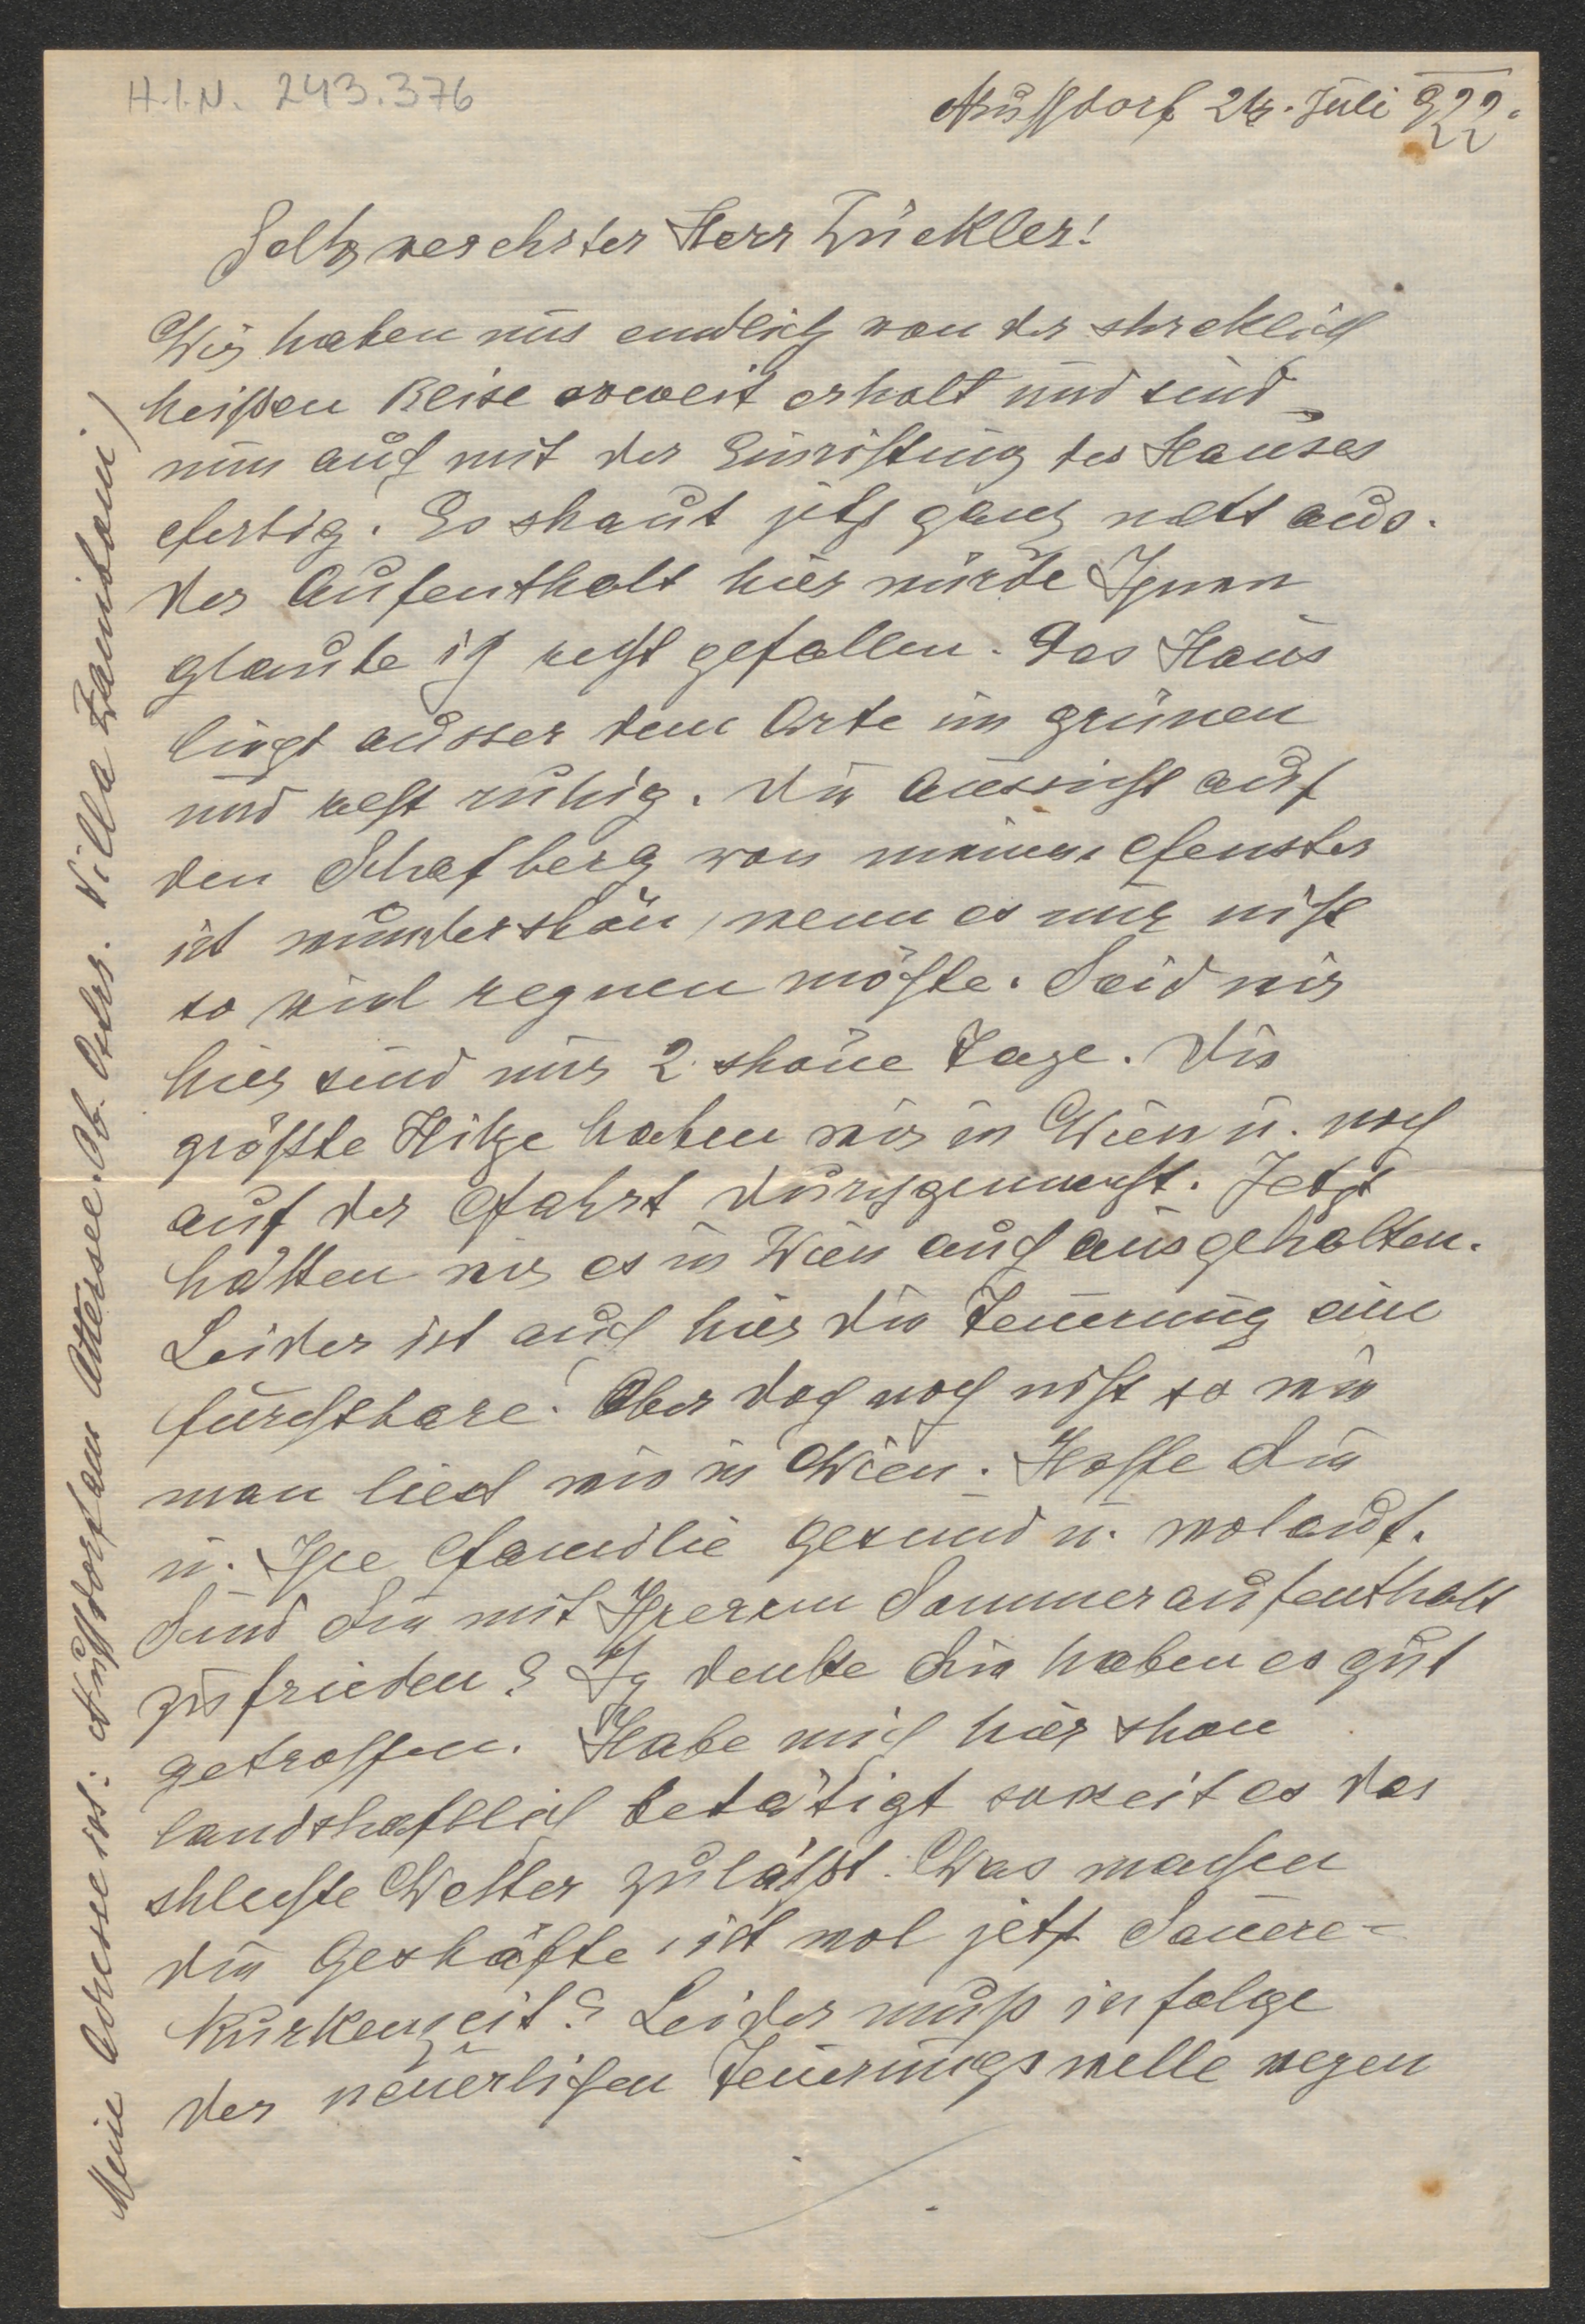 H.I.N. 243.376
Nußdorf 24. Juli 922.
Sehr verehrter Herr Zückler!
Wir haben uns endlich von der schreklich
heißen Reise soweit erholt und sind
nun auch mit der Einrichtung des Hauses
fertig. Es schaut jetzt ganz nett aus.
Der Aufenthalt hier würde Ihnen
glaube ich recht gefallen. Das Haus
liegt ausser dem Orte im grünen
und recht ruhig. Die Aussicht auf
den Schafberg von meinem Fenster
ist wunderschön, wenn es nur nicht
so viel regnen möchte. Seid wir
hier sind nur 2 schöne Tage. Die
größte Hitze haben wir in Wien u. noch
auf der Fahrt durchgemacht. Jetzt
hätten wir es in Wien auch ausgehalten.
Leider ist auch hier die Teuerung eine
furchtbare! Aber doch noch nicht so wie
man liest wie in Wien. Hoffe Sie
u. Ihre Familie gesund u. wolauf.
Sind Sie mit Ihrerem Sommeraufenthalt
zufrieden? Ich denke Sie haben es gut
getroffen. Habe mich hier schon
landschaftlich betätigt soweit es das
schlechte Wetter zuläßt. Was machen
die Geschäfte, ist wol jetzt Sauere-
Kurkenzeit? Leider muß infolge
der neuerlichen Teuerungswelle wegen
Meine Adresse ist: Nußdorf am Attersee. Ob. Östr. Villa